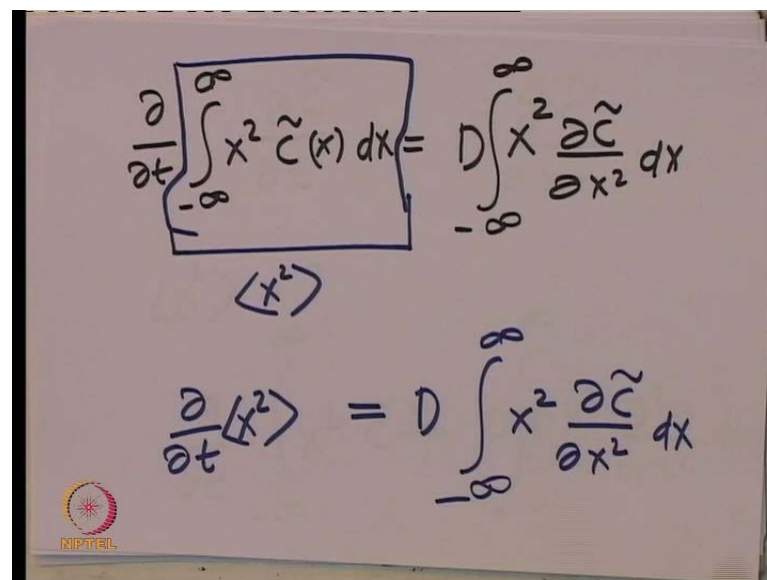 ∂/∂t ∫_{-∞}^{∞} x² c̃(x) dx = D ∫_{-∞}^{∞} x² ∂c̃/∂x² dx
⟨x²⟩
∂/∂t ⟨x²⟩ = D ∫_{-∞}^{∞} x² ∂c̃/∂x² dx
NPTEL